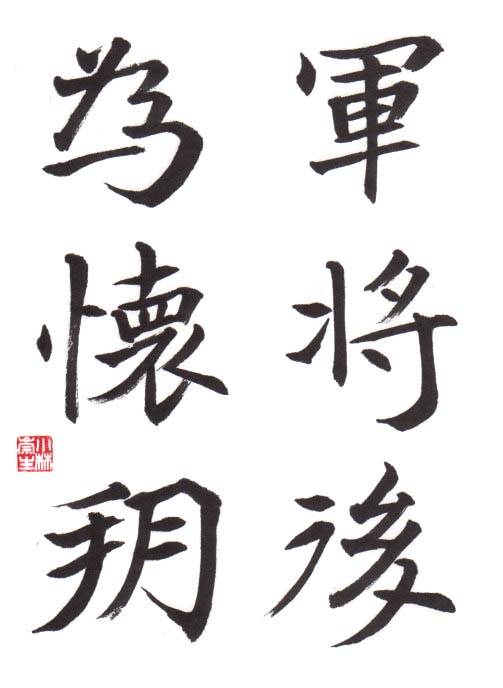 軍将後
為懐朔
小林